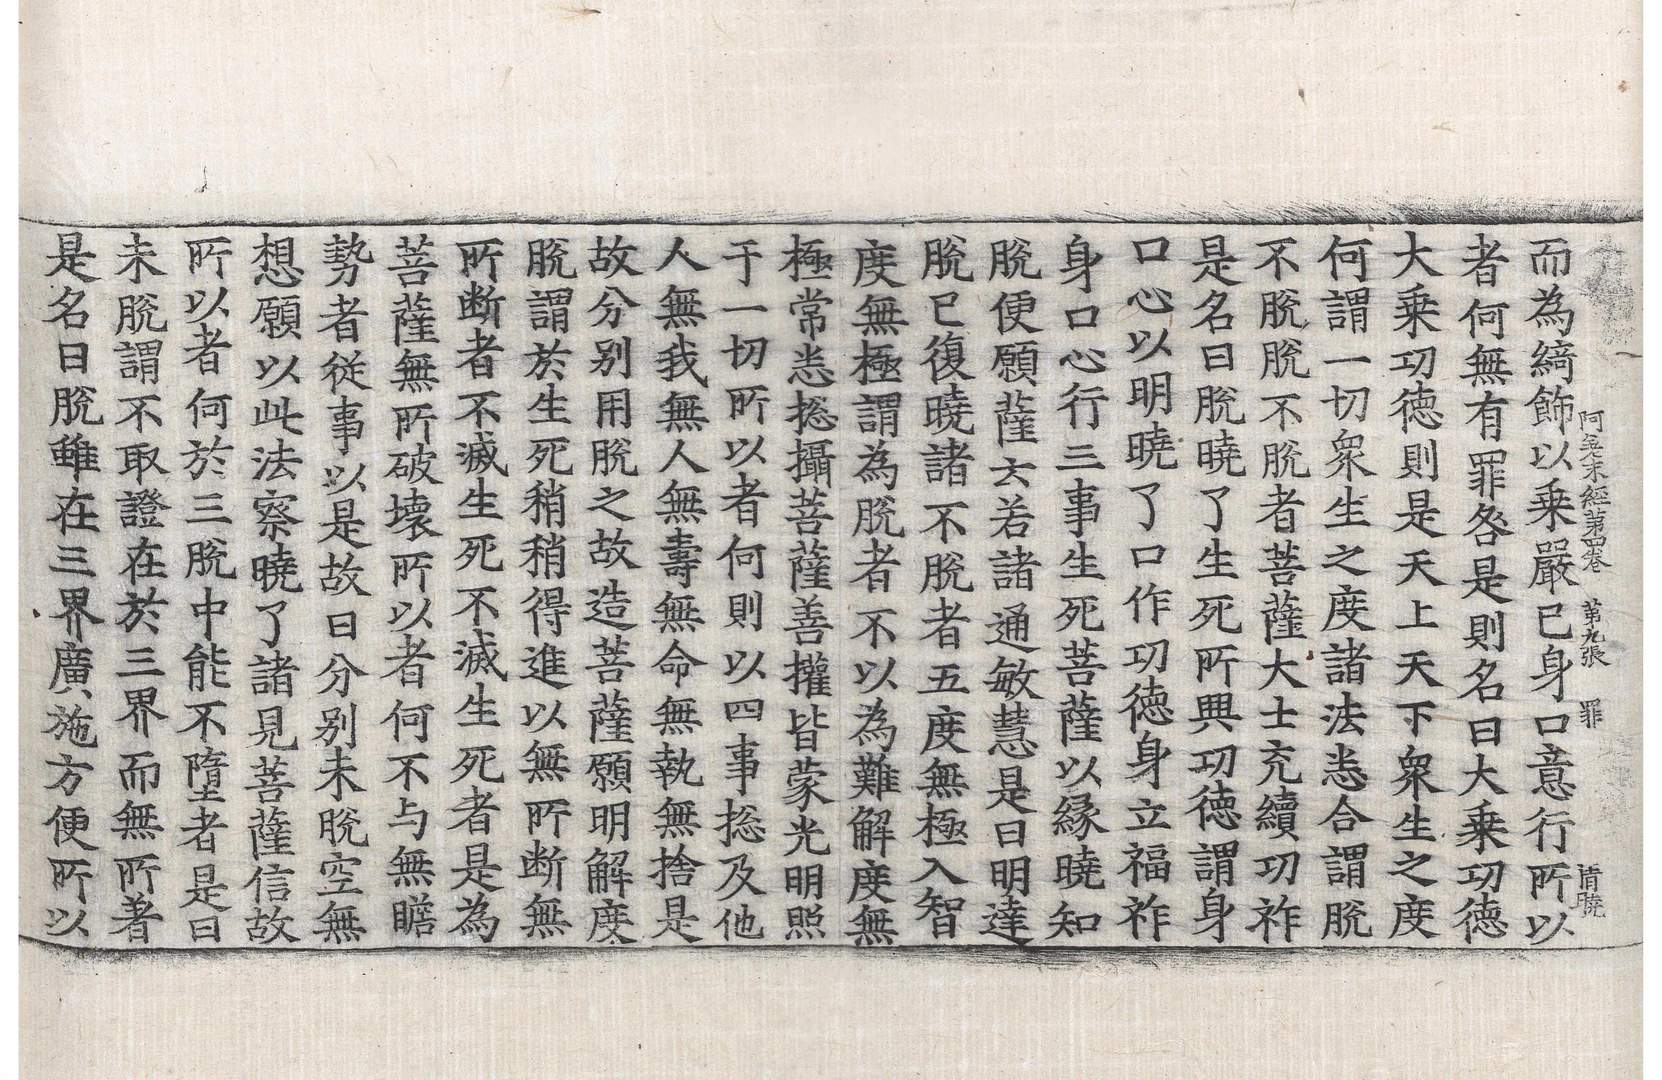 阿差末經第四卷　第九張　罪
而為綺飾以乗嚴已身口意行所以
者何無有罪咎是則名曰大乗功德
大乗功德則是天上天下衆生之度
何謂一切衆生之度諸法悉合謂脫
不脫脫不脫者菩薩大士充續功祚
是名曰脫曉了生死所興功德謂身
口心以明曉了口作功德身立福祚
身口心行三事生死菩薩以緣曉知
脫便願薩云若諸通敏慧是曰明達
脫已復曉諸不脫者五度無極入智
度無極謂為脫者不以為難解度無
極常悉捴攝菩薩善權皆蒙光明照
于一切所以者何則以四事捴及他
人無我無人無壽無命無執無捨是
故分别用脫之故造菩薩願明解度
脫謂於生死稍稍得進以無所断無
所断者不滅生死不滅生死者是為
菩薩無所破壞所以者何不与無瞻
勢者從事以是故曰分别未脫空無
想願以此法察曉了諸見菩薩信故
所以者何於三脫中能不墮者是曰
未脫謂不取證在於三界而無所著
是名曰脫雖在三界廣施方便所以